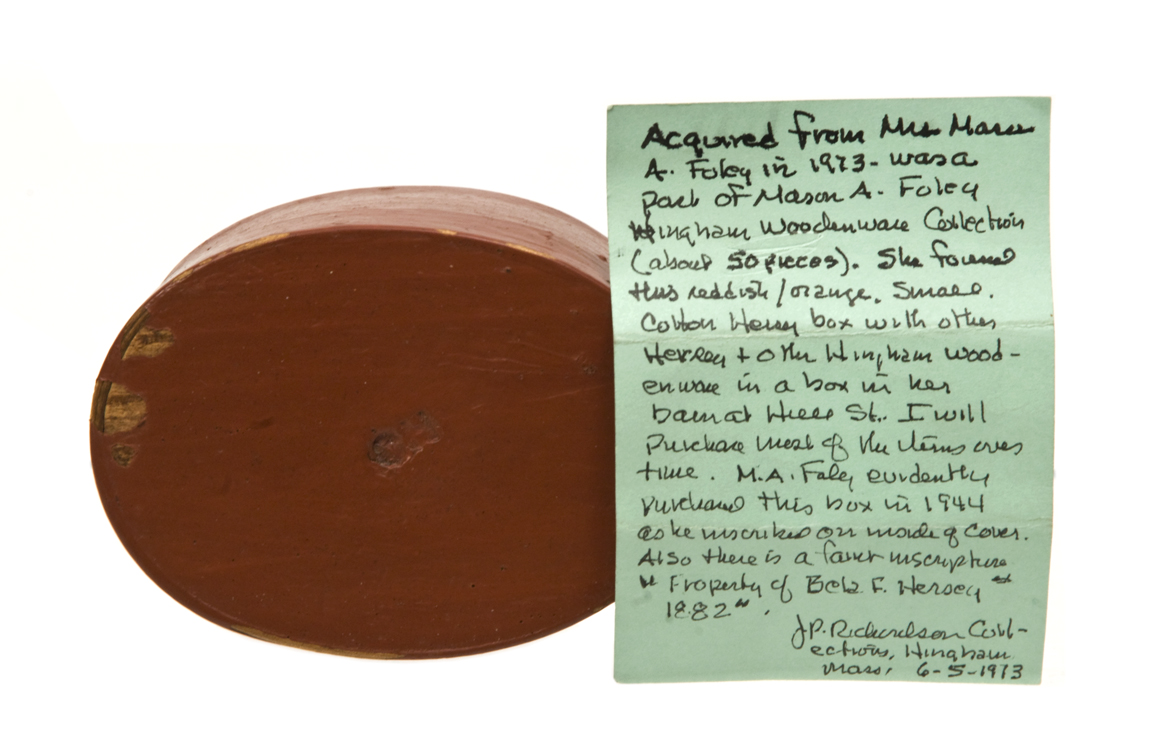 Acquired from Mrs Mason
A. Foley in 1973 - was a
part of Mason A. Foley
Hingham Woodenware Collection
(about 50 pieces). She found
this reddish/orange, small.
Cotton Hersey box with other
Hersey + other Hingham wood-
enware in a box in her
barn at Hersey St. I will
purchase most of the items over
time. M.A. Foley evidently
purchased this box in 1944
as he inscribed on inside of cover.
Also there is a faint inscription
"Property of Bela F. Hersey
1882".
J.P. Richardson Coll-
ections, Hingham
Mass, 6-5-1973